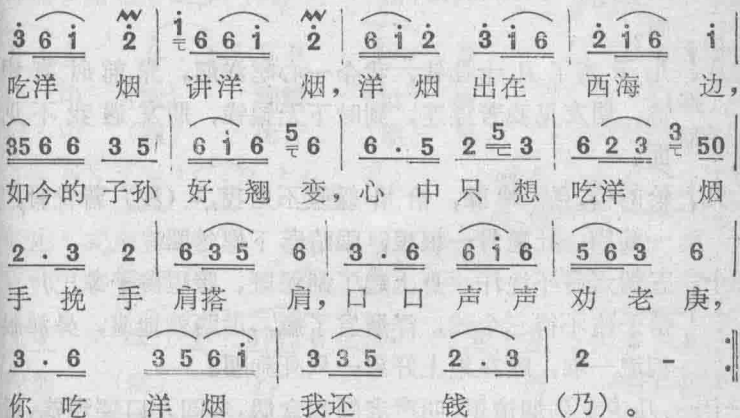 3 6 i 2 | i 6 6 i 2 | 6 i 2 3 i 6 | 2 i 6 i |
吃洋 烟 讲洋 烟，洋 烟 出在 西海 边，
35 6 6 3 5 | 6 i 6 5 6 | 6 . 5 2 5 3 | 6 2 3 3 50 |
如今的 子孙 好 翘 变，心 中 只 想 吃洋 烟
2 . 3 2 | 6 3 5 6 | 3 . 6 6 i 6 | 5 6 3 6 |
手 挽 手 肩搭 肩，口 口 声 声 劝 老 庚，
3 . 6 3 5 6 i | 3 3 5 2 . 3 | 2 - :||
你 吃 洋 烟 我还 钱 (乃)。